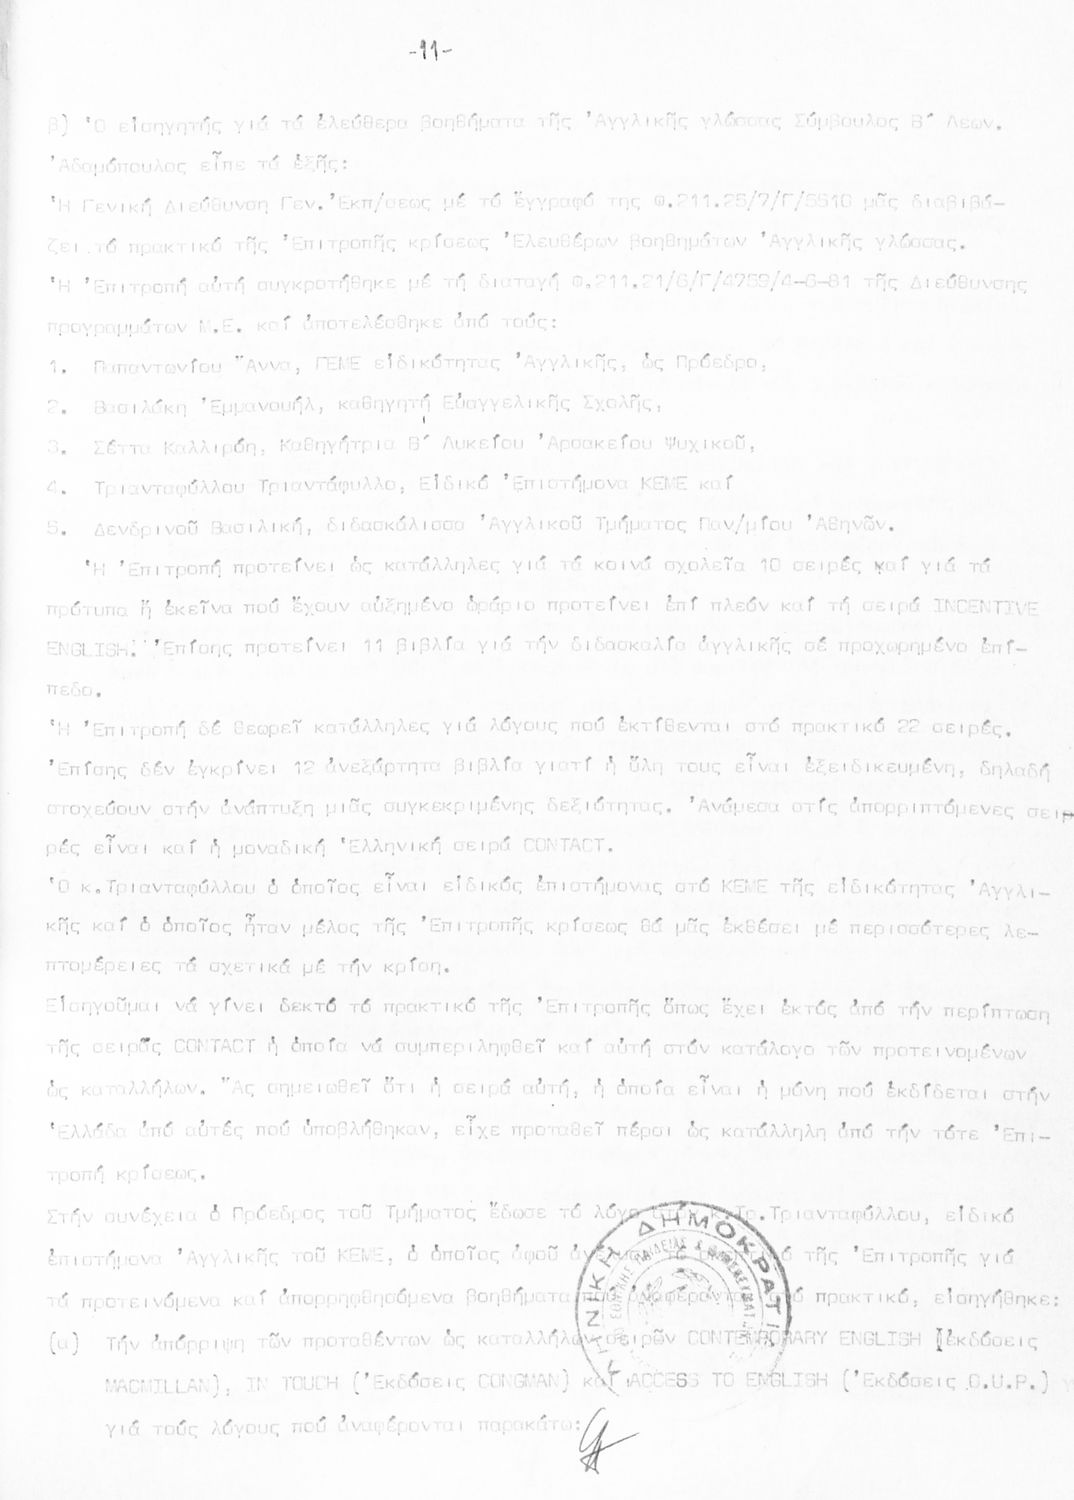 -11-
β) Ὁ εἰσηγητής γιά τά ἐλεύθερα βοηθήματα τῆς Ἀγγλικῆς γλώσσας Σύμβουλος Β΄ Λεων.
Ἀδαμόπουλος εἶπε τά ἑξῆς:
Ἡ Γενική Διεύθυνση Γεν. Ἐκπ/σεως μέ τό ἔγγραφό της Φ.211.25/7/Γ/5510 μᾶς διαβιβά-
ζει τό πρακτικό τῆς Ἐπιτροπῆς κρίσεως Ἐλευθέρων βοηθημάτων Ἀγγλικῆς γλώσσας.
Ἡ Ἐπιτροπή αὐτή συγκροτήθηκε μέ τή διαταγή Φ.211.21/6/Γ/4759/4-6-81 τῆς Διεύθυνσης
προγραμμάτων Μ.Ε. καί ἀποτελέσθηκε ἀπό τούς:
1. Παπαντωνίου Ἄννα, ΓΕΜΕ εἰδικότητας Ἀγγλικῆς, ὡς Πρόεδρο,
2. Βασιλάκη Ἐμμανουήλ, καθηγητή Εὐαγγελικῆς Σχολῆς,
3. Σέττα Καλλιρόη, Καθηγήτρια Β΄ Λυκείου Ἀρσακείου Ψυχικοῦ,
4. Τριανταφύλλου Τριαντάφυλλο, Εἰδικό Ἐπιστήμονα ΚΕΜΕ καί
5. Δενδρινοῦ Βασιλική, διδασκάλισσα Ἀγγλικοῦ Τμήματος Παν/μίου Ἀθηνῶν.
Ἡ Ἐπιτροπή προτείνει ὡς κατάλληλες γιά τά κοινά σχολεῖα 10 σειρές καί γιά τά
πρότυπα ἤ ἐκεῖνα πού ἔχουν αὐξημένο ὡράριο προτείνει ἐπί πλέον καί τή σειρά INCENTIVE
ENGLISH. Ἐπίσης προτείνει 11 βιβλία γιά τήν διδασκαλία ἀγγλικῆς σέ προχωρημένο ἐπί-
πεδο.
Ἡ Ἐπιτροπή δέ θεωρεῖ κατάλληλες γιά λόγους πού ἐκτίθενται στό πρακτικό 22 σειρές.
Ἐπίσης δέν ἐγκρίνει 12 ἀνεξάρτητα βιβλία γιατί ἡ ὕλη τους εἶναι ἐξειδικευμένη, δηλαδή
στοχεύουν στήν ἀνάπτυξη μιᾶς συγκεκριμένης δεξιότητας. Ἀνάμεσα στίς ἀπορριπτόμενες σει-
ρές εἶναι καί ἡ μοναδική Ἑλληνική σειρά CONTACT.
Ὁ κ. Τριανταφύλλου ὁ ὁποῖος εἶναι εἰδικός ἐπιστήμονας στό ΚΕΜΕ τῆς εἰδικότητας Ἀγγλι-
κῆς καί ὁ ὁποῖος ἦταν μέλος τῆς Ἐπιτροπῆς κρίσεως θά μᾶς ἐκθέσει μέ περισσότερες λε-
πτομέρειες τά σχετικά μέ τήν κρίση.
Εἰσηγοῦμαι νά γίνει δεκτό τό πρακτικό τῆς Ἐπιτροπῆς ὅπως ἔχει ἐκτός ἀπό τήν περίπτωση
τῆς σειρᾶς CONTACT ἡ ὁποία νά συμπεριληφθεῖ καί αὐτή στόν κατάλογο τῶν προτεινομένων
ὡς καταλλήλων. Ἄς σημειωθεῖ ὅτι ἡ σειρά αὐτή, ἡ ὁποία εἶναι ἡ μόνη πού ἐκδίδεται στήν
Ἑλλάδα ἀπό αὐτές πού ὑποβλήθηκαν, εἶχε προταθεῖ πέρσι ὡς κατάλληλη ἀπό τήν τότε Ἐπι-
τροπή κρίσεως.
Στήν συνέχεια ὁ Πρόεδρος τοῦ Τμήματος ἔδωσε τό λόγο στόν κ. Τρ. Τριανταφύλλου, εἰδικό
ἐπιστήμονα Ἀγγλικῆς τοῦ ΚΕΜΕ, ὁ ὁποῖος ἀφοῦ τό τῆς Ἐπιτροπῆς γιά
τά προτεινόμενα καί ἀπορρηφθησόμενα βοηθήματα πού ἀναφέρονται στό πρακτικό, εἰσηγήθηκε:
(α) Τήν ἀπόρριψη τῶν προταθέντων ὡς καταλλήλων σειρῶν CONTEMPORARY ENGLISH (ἐκδόσεις
MACMILLAN), IN TOUCH (Ἐκδόσεις CONGMAN) καί ACCESS TO ENGLISH (Ἐκδόσεις O.U.P.)
γιά τούς λόγους πού ἀναφέρονται παρακάτω:
ΔΗΜΟΚΡΑΤΙ
ΕΘΝΙΚΗΣ ΠΑΙΔΕΙΑΣ & ΘΡΗΣΚΕΥΜΑΤ